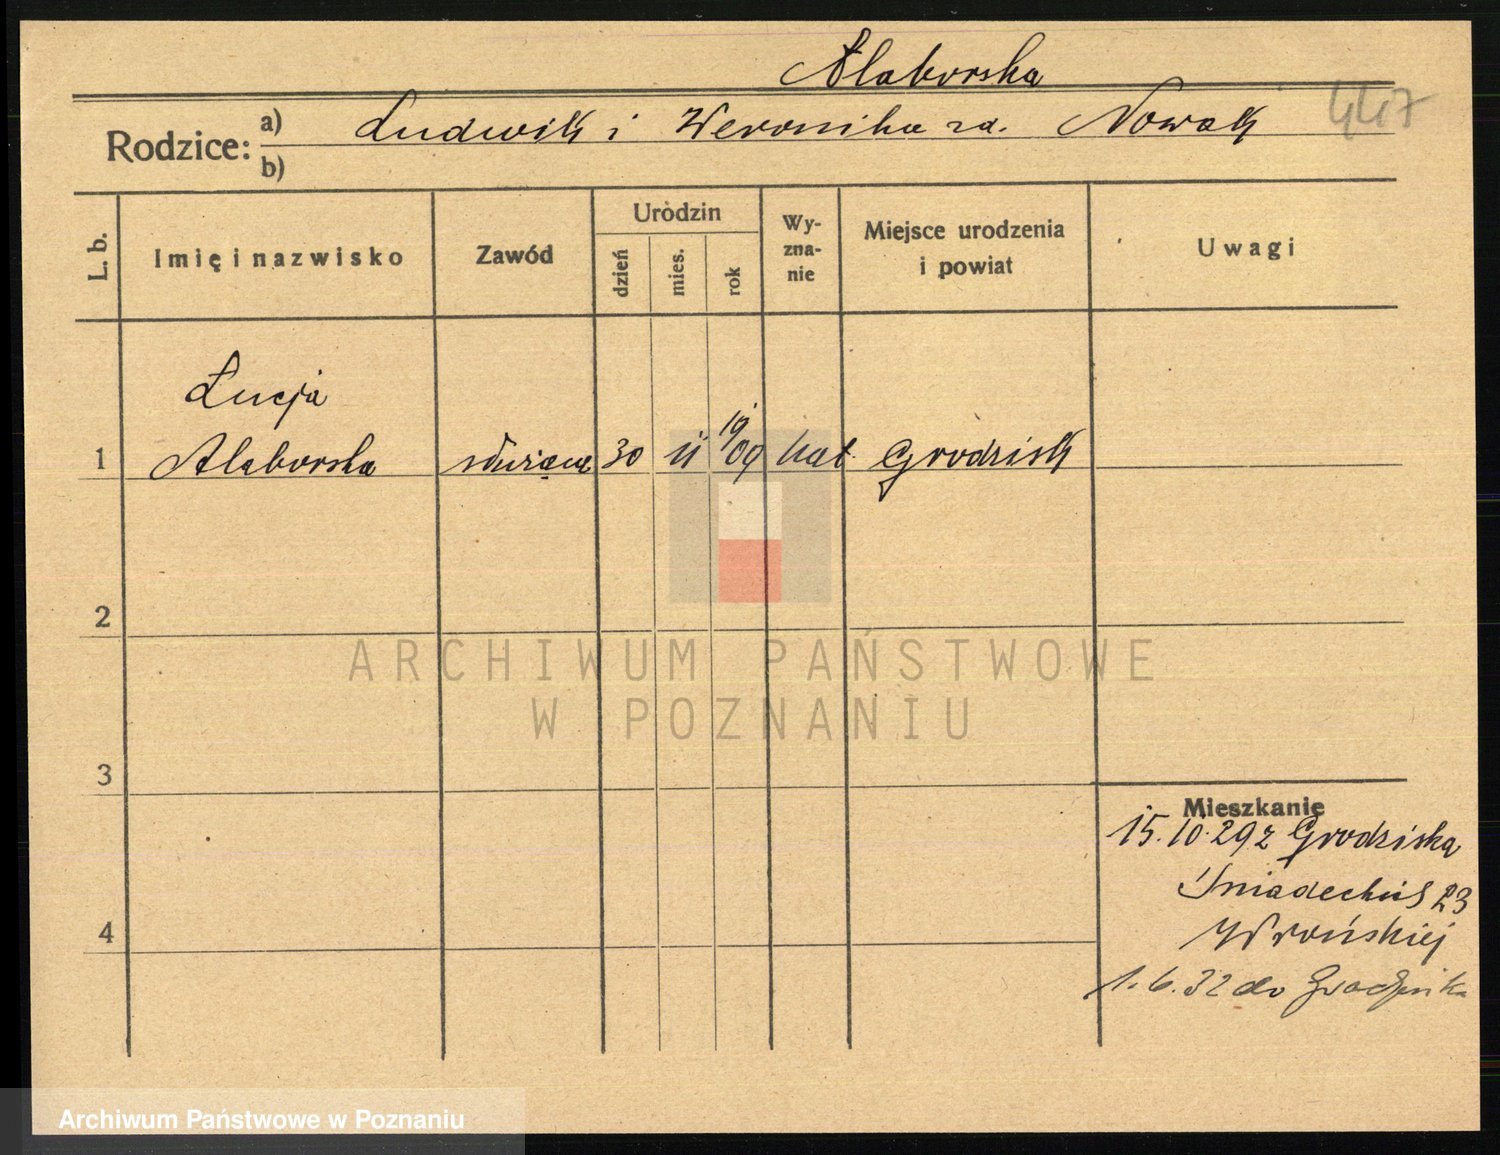 Alaborska
447
Rodzice:
a) Ludwik i Weronika zd. Nowak
b)
L. b.
Imię i nazwisko
Zawód
Urodzin
dzień
mies.
rok
Wy-
zna-
nie
Miejsce urodzenia
i powiat
Uwagi
Łucja
1 Alaborska służąca 30 11 1909 kat. Grodzisk
2
3
4
Mieszkanie
15.10.29 z Grodziska
23
Wrońskiej
1.6.32 do Grodziska
ARCHIWUM PAŃSTWOWE
W POZNANIU
Archiwum Państwowe w Poznaniu